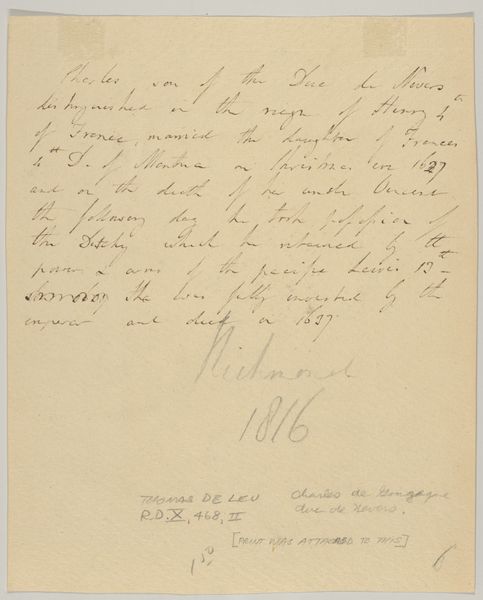 Charles son of the Duc de Nevers
distinguished in the reign of Henry 4th
of France, married the daughter of Frances
4th D. of Mantua on Christmas eve 1627
and on the death of her uncle Vincent
the following day he took possession of
the Dutchy which he retained by the
power & arms of the pacific Lewis 13th
he was fully invested by the
emperor and died in 1637
Richmond
1816
THOMAS DE LEU
R.D. X, 468, II
Charles de Gonzague
duc de Nevers.
[PRINT WAS ATTACHED TO THIS]
1 50
6